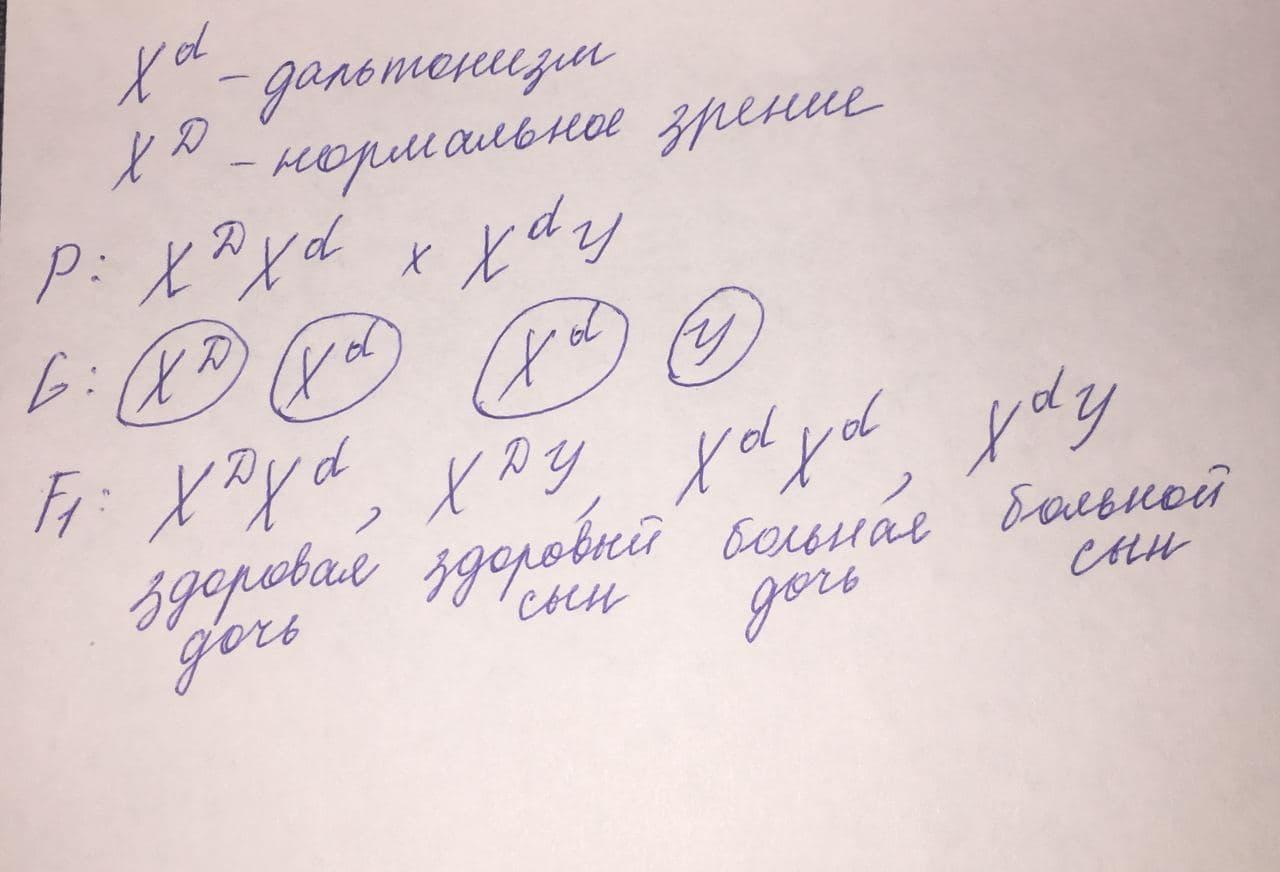 X^d – дальтонизм
X^D – нормальное зрение
P: X^D X^d x X^d y
G: X^D X^d X^d y
F1: X^D X^d, X^D y, X^d X^d, X^d y
здоровая здоровый больная больной
дочь сын дочь сын